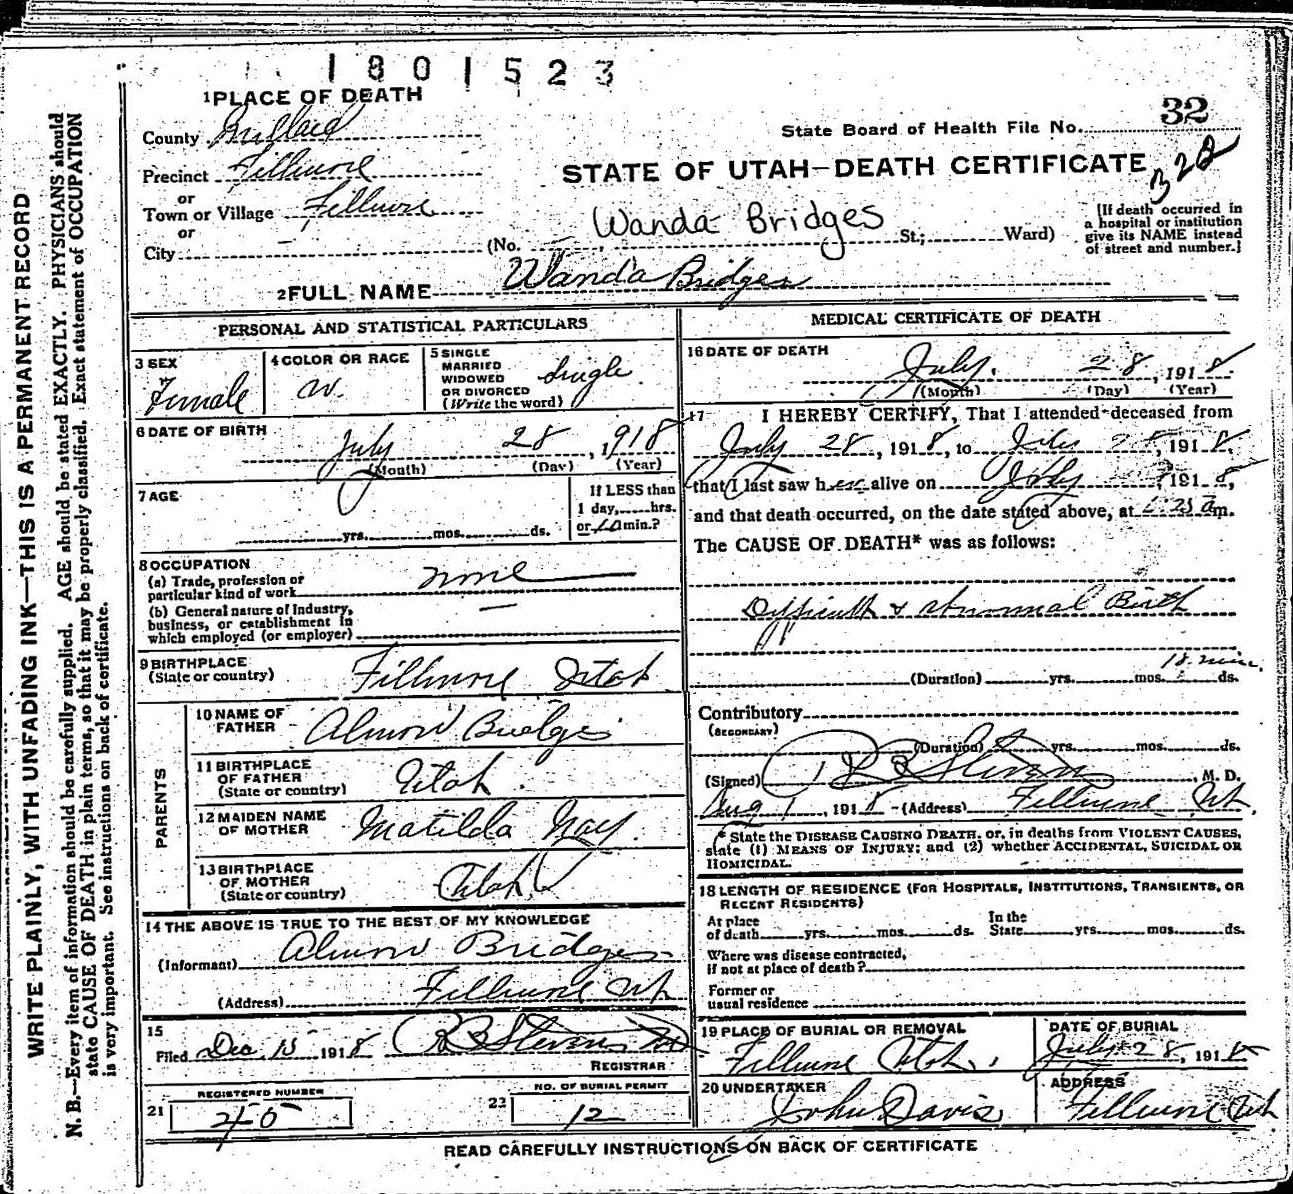 1801523
1 PLACE OF DEATH
32
County Millard
State Board of Health File No.
Precinct Fillmore
STATE OF UTAH—DEATH CERTIFICATE
328
or
Town or Village Fillmore
or
City
(No. St.; Ward)
Wanda Bridges
[If death occurred in
a hospital or institution
give its NAME instead
of street and number.]
2 FULL NAME Wanda Bridges
PERSONAL AND STATISTICAL PARTICULARS
3 SEX
Female
4 COLOR OR RACE
W.
5 SINGLE
MARRIED
WIDOWED
OR DIVORCED
(Write the word)
Single
6 DATE OF BIRTH
July 28, 1918
(Month) (Day) (Year)
7 AGE
yrs. mos. ds.
If LESS than
1 day, hrs.
or 10 min.?
8 OCCUPATION
(a) Trade, profession or
particular kind of work
none
(b) General nature of Industry,
business, or establishment in
which employed (or employer)
9 BIRTHPLACE
(State or country)
Fillmore Utah
PARENTS
10 NAME OF
FATHER
Almon Bridges
11 BIRTHPLACE
OF FATHER
(State or country)
Utah
12 MAIDEN NAME
OF MOTHER
Matilda Nay
13 BIRTHPLACE
OF MOTHER
(State or country)
Utah
14 THE ABOVE IS TRUE TO THE BEST OF MY KNOWLEDGE
(Informant) Almon Bridges
(Address) Fillmore Ut
15
Filed Dec 15 1918 R B Stevens
REGISTRAR
21 REGISTERED NUMBER
22 NO. OF BURIAL PERMIT
12
MEDICAL CERTIFICATE OF DEATH
16 DATE OF DEATH
July 28, 1918
(Month) (Day) (Year)
17 I HEREBY CERTIFY, That I attended deceased from
July 28, 1918, to July 28, 1918,
that I last saw her alive on July 1918,
and that death occurred, on the date stated above, at 25 a m.
The CAUSE OF DEATH* was as follows:
Difficult & abnormal Birth
(Duration) yrs. mos. ds.
min.
Contributory
(SECONDARY)
(Duration) yrs. mos. ds.
(Signed) R B Stevens, M. D.
Aug 1, 1918 (Address) Fillmore Ut
* State the DISEASE CAUSING DEATH, or, in deaths from VIOLENT CAUSES,
state (1) MEANS OF INJURY; and (2) whether ACCIDENTAL, SUICIDAL OR
HOMICIDAL.
18 LENGTH OF RESIDENCE (FOR HOSPITALS, INSTITUTIONS, TRANSIENTS, OR
RECENT RESIDENTS)
At place
of death yrs. mos. ds.
In the
State yrs. mos. ds.
Where was disease contracted,
if not at place of death?
Former or
usual residence
19 PLACE OF BURIAL OR REMOVAL
Fillmore Utah
DATE OF BURIAL
July 28, 1918
20 UNDERTAKER
John Davis
ADDRESS
Fillmore Ut
READ CAREFULLY INSTRUCTIONS ON BACK OF CERTIFICATE
WRITE PLAINLY, WITH UNFADING INK—THIS IS A PERMANENT RECORD
N. B.—Every item of information should be carefully supplied. AGE should be stated EXACTLY. PHYSICIANS should
state CAUSE OF DEATH in plain terms, so that it may be properly classified. Exact statement of OCCUPATION
is very important. See instructions on back of certificate.